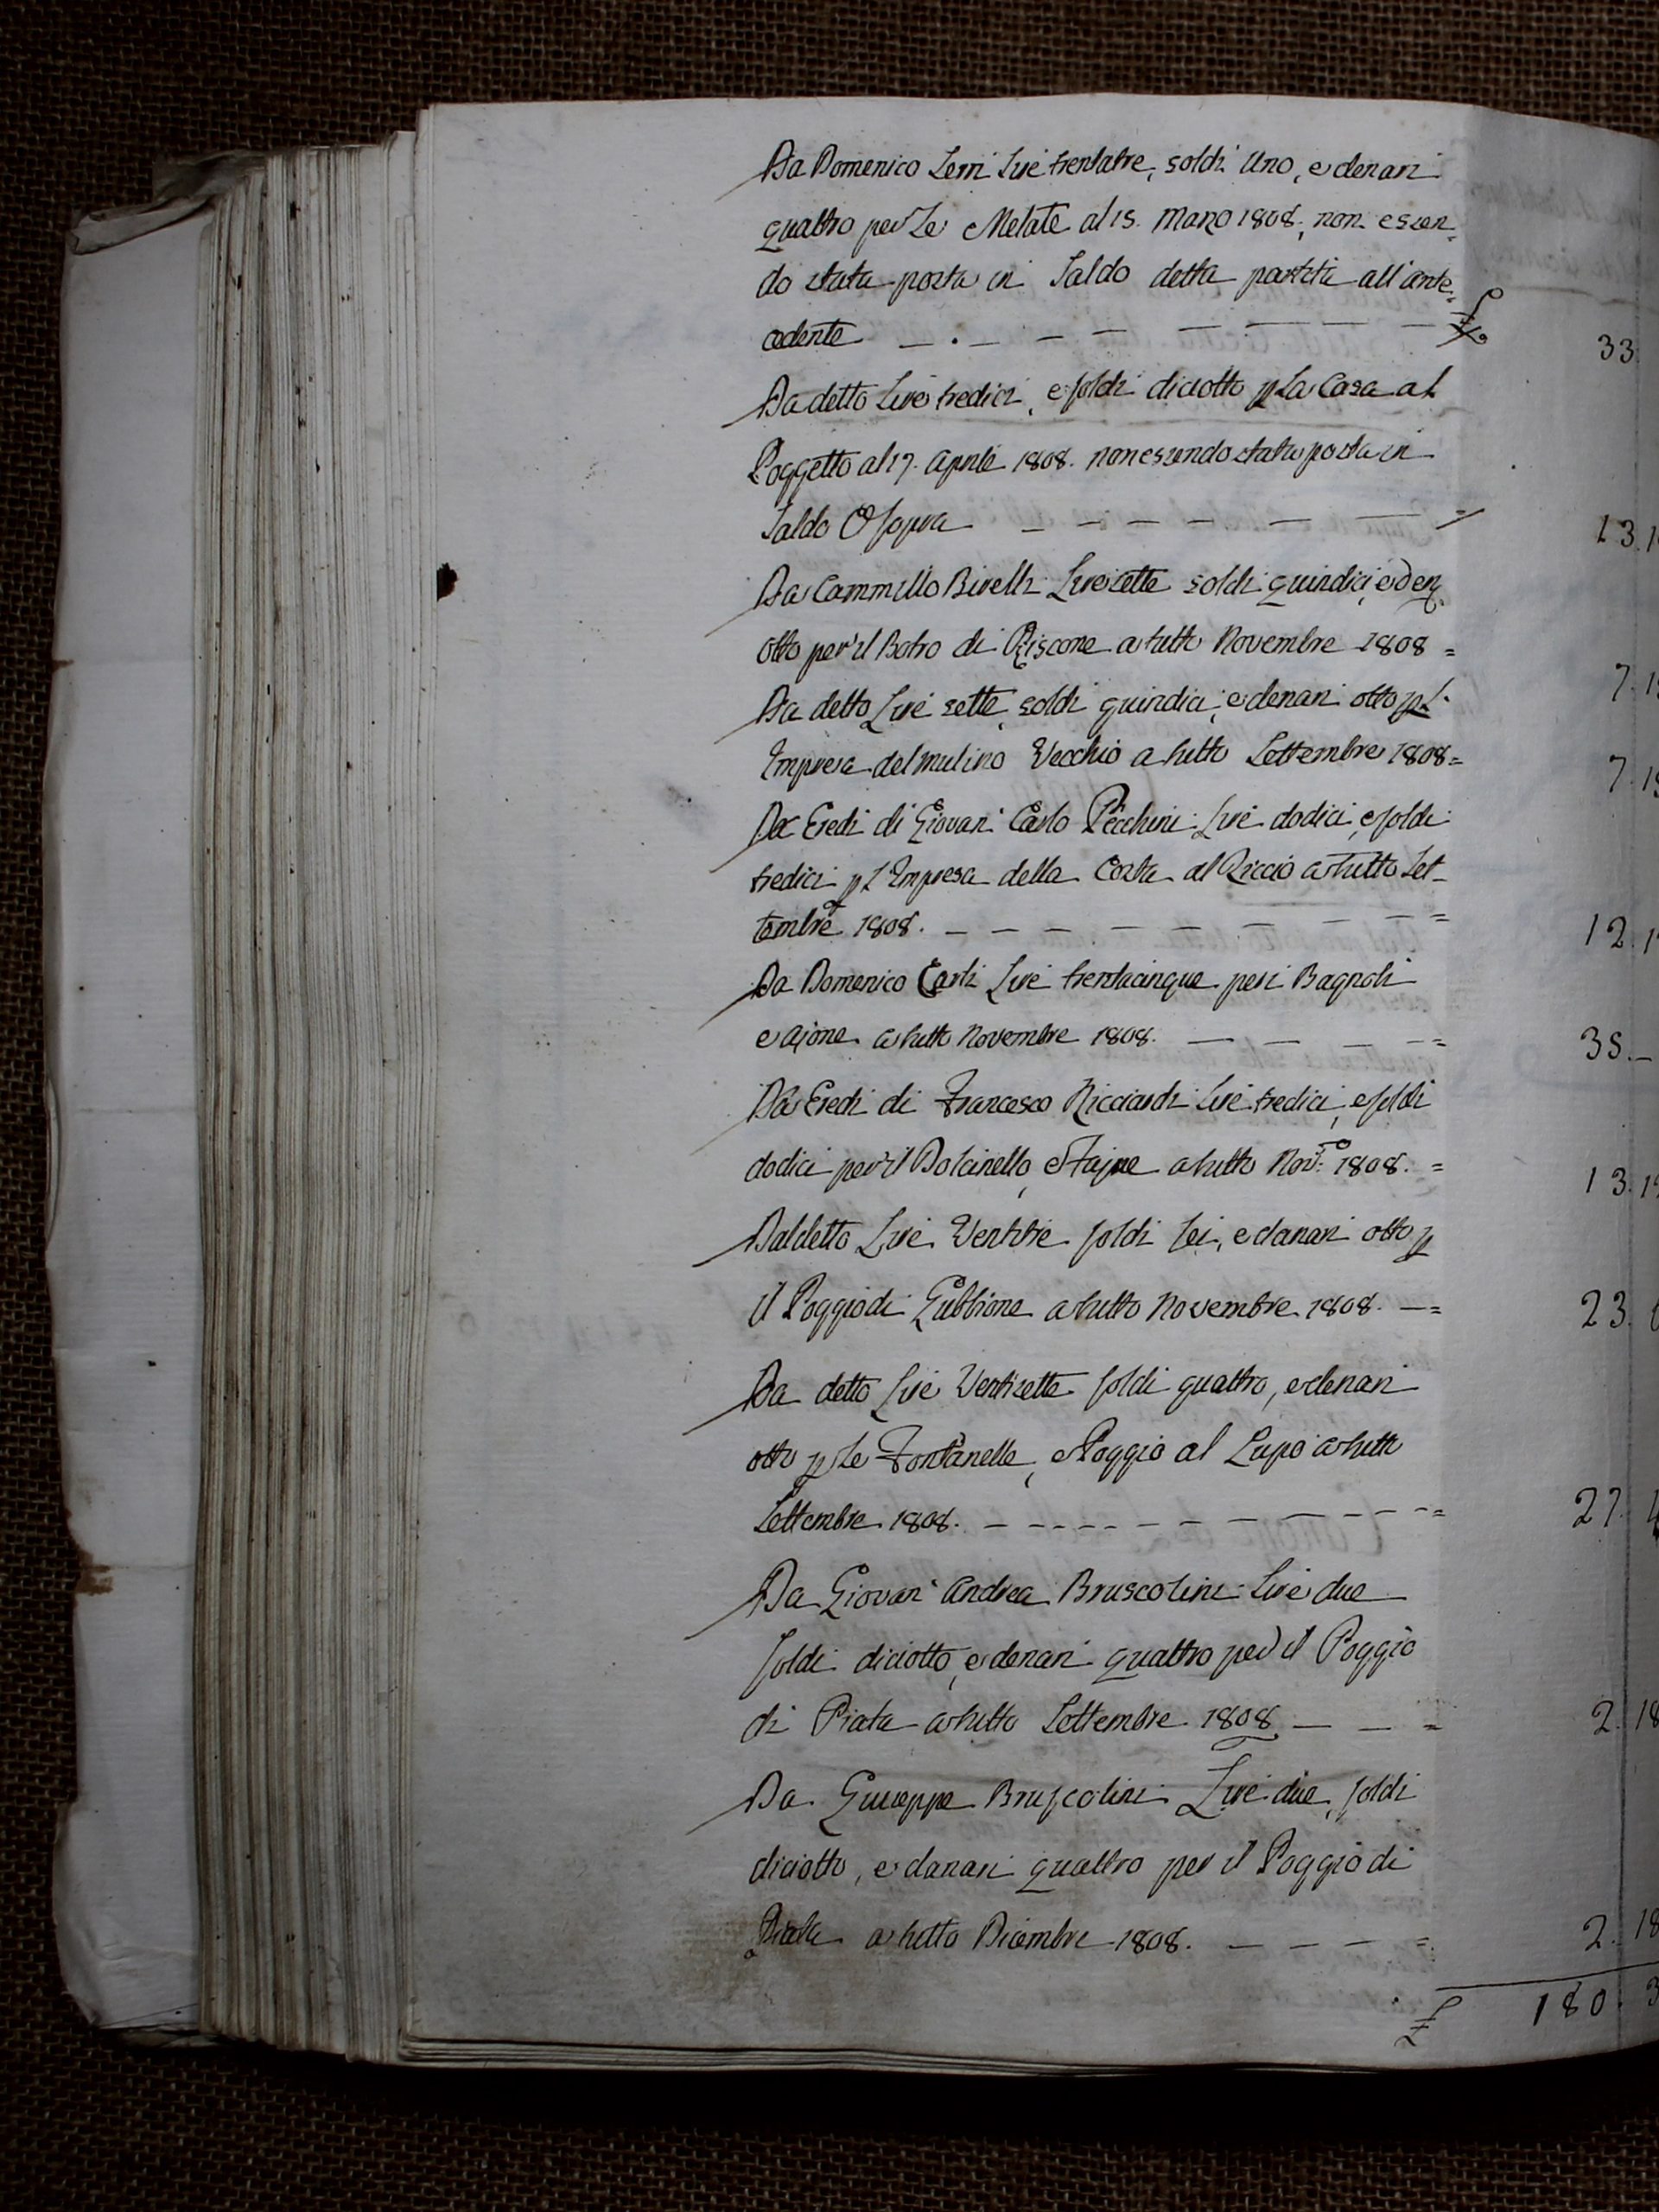 Da Domenico Lem Lire trentatre, soldi Uno, e denari
quattro per Le Melate al 15. Marzo 1808, non essen=
do stata posta in Saldo detta partita all'ante=
cedente £ 33
Da detto Lire tredici, e soldi diciotto p La Casa al
Poggetto al 17. Aprile 1808. non essendo stata posta in
Saldo Osopra = 13.1
Da Cammillo Birelli Lire sette soldi quindici, e den
otto per il Botro di Riscone a tutto Novembre 1808 = 7.15
Da detto Lire sette, soldi quindici, e denari otto p l'
Impresa del Mulino Vecchio a tutto Settembre 1808 = 7.15
Da Eredi di Giovani Carlo Pecchini Lire dodici, e soldi
tredici p l'Impresa della Costa al Riccio a tutto Set=
tembre 1808. = 12.1
Da Domenico Carli Lire trentacinque per i Bagnoli
e Ajone a tutto Novembre 1808. = 35.—
Da Eredi di Francesco Ricciardi Lire tredici, e soldi
dodici per il Dolcinello, e Stajne a tutto Nov: 1808. = 13.1
Dal detto Lire Ventitre soldi sei, e danari otto p
il Poggio di Gubbione a tutto Novembre 1808. = 23.6
Da detto Lire Ventisette soldi quattro, e denari
otto p Le Fontanelle, e Poggio al Lupo a tutto
Settembre 1808. = 27.4
Da Giovan Andrea Bruscolini Lire due
soldi diciotto, e denari quattro per il Poggio
di Piata a tutto Settembre 1808 = 2.18
Da Giuseppe Bruscolini Lire due, soldi
diciotto, e danari quattro per il Poggio di
Piata a tutto Dicembre 1808. = 2.18
£ 180.3